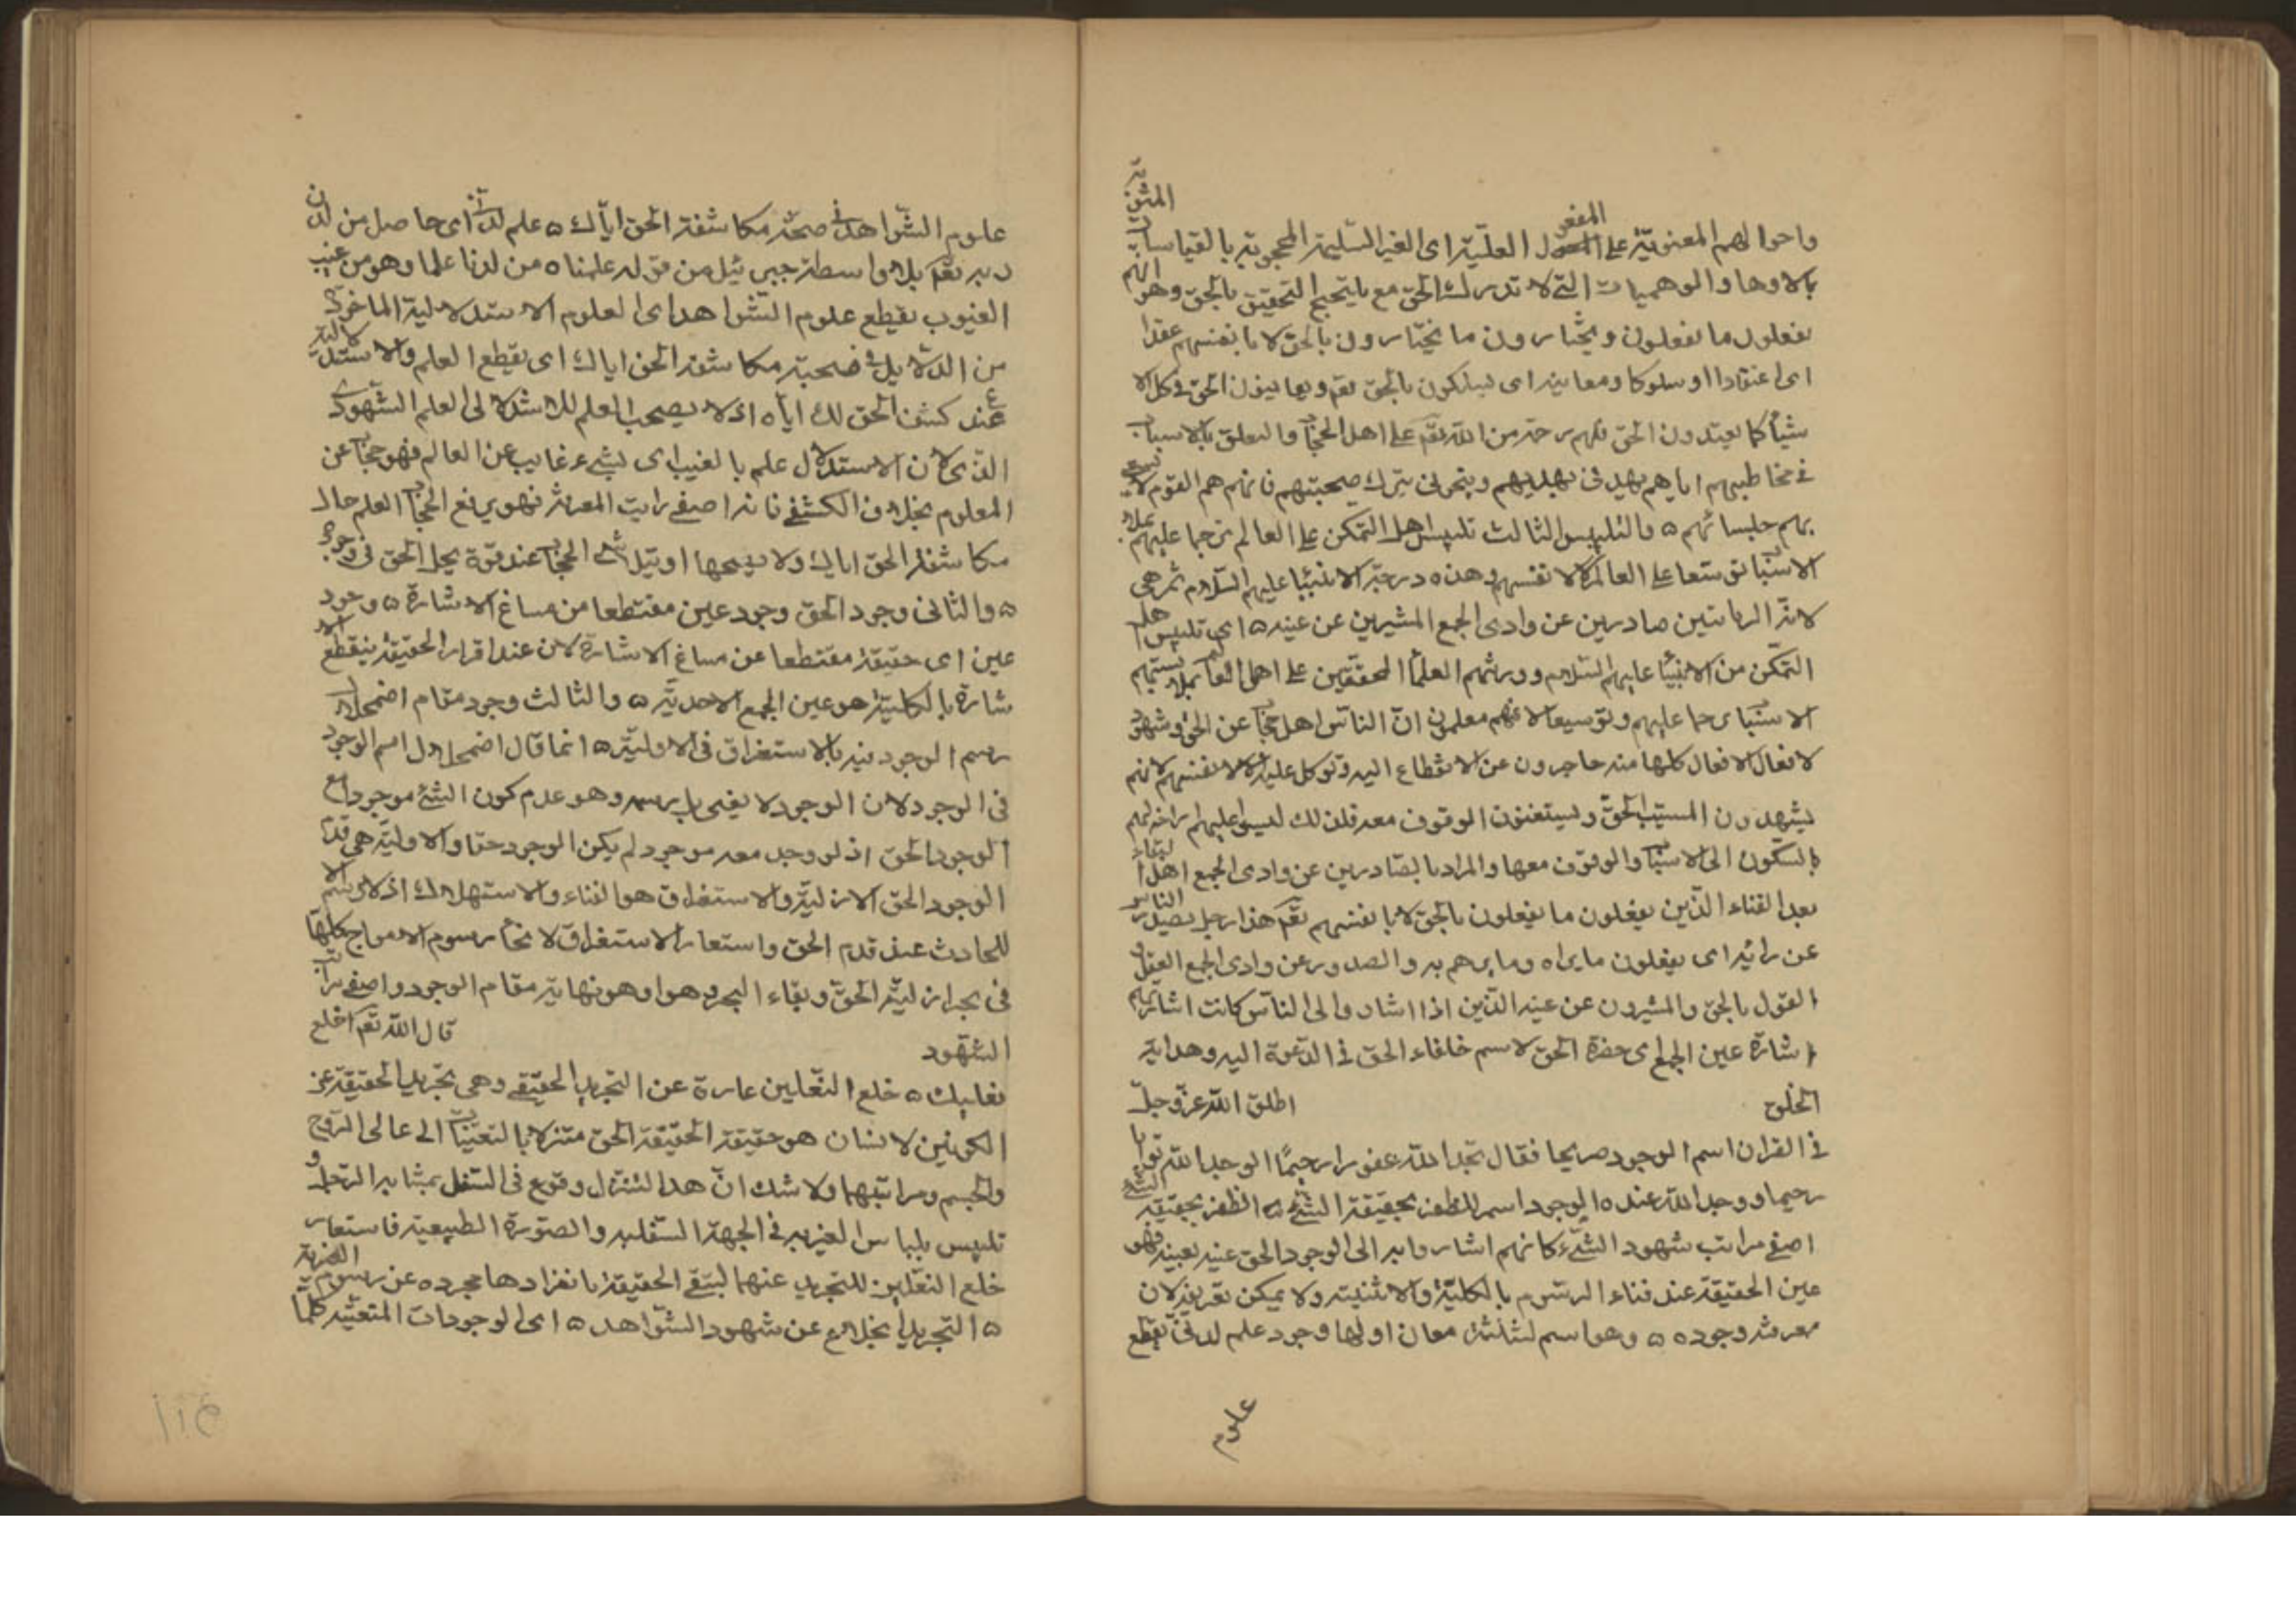 واحوالهم المعنوية على العقول العليّة اى الغير السّليمة المحجوبة بالقياسات المشوبة
بالاوهام والوهميات التى لا تدرك الحق مع بالتحقيق بالحق وهو انهم
يفعلون ما يفعلون ويختارون ما يختارون بالحق لا بانفسهم عقدا
اى اعتقادا او سلوكا ومعاينة اى يسلكون بالحق تعم ويعاينون الحق فى كل الا
شيأ كما يعتدون الحق فلهم رحمة من اللّه تعم على اهل الحجاب والتعلق بالاسباب
فى مخاطبتهم اياهم
بهم جليسائهم ه والتلبيس الثالث تلبيس اهل التمكن على العالم ترحما عليهم بملا
الاسباب توسعا على العالم لا لانفسهم وهذه درجة الانبيا عليهم السّلام ثم هى
لائمّة الربانيين صادرين عن وادى الجمع المشيرين عن عينه ه اى تلبيس اهل
التمكّن من الانبيأ عليهم السّلام وورثتهم العلمأ المحققين على اهل العالم
الاسباب رحما عليهم وتوسيعا لانهم يعلمون انّ الناس اهل حجاب عن الحق وشهود
لافعال الافعال كلها منه عاجزون عن الانقطاع اليه وتوكل عليه لا لانفسهم لانهم
يشهدون المسبّب الحقّ ويستغنون الوقوف معه فلذلك
بالسّكون الى الاسباب والوقوف معها والمراد بالصّادرين عن وادى الجمع اهل البقاء
بعد الفناء الّذين يفعلون ما يفعلون بالحق لا بانفسهم تقم هذا رجل يصدر الناس
عن رائيه اى يفعلون ما يراه وما يرهم به والصدور عن وادى الجمع الفعل و
القول بالحق والمشيرون عن عينه الّذين اذا اشاروا الى النّاس كانت اشارتهم
اشارة عين الجمع اى حضرة الحق لاسم خلفاء الحق فى الدّعوة اليه وهدايته
الخلق اطلق اللّه عزّ وجلّ
فى القران اسم الوجود صريحا فقال تجد اللّه غفورا رحيمًا لوجدوا اللّه توابا
رحيما ووجد اللّه عنده ه الوجود اسم للظفر بحقيقة الشئ ه الظفر بحقيقة الشئ
اصفى مراتب شهود الشئ كانهم اشاروا به الى الوجود الحق عينه بعينه فهو
عين الحقيقة عند فناء الرسوم بالكلية والاثنيته ولا يمكن تعريفه لان
معرفته وجوده ه ه وهو اسم لثلثة معان اولها وجود علم لدنّى يقطع
علوم
علوم الشّواهد فى صحّة مكاشفة الحق ايّاك ه علم لدنى اى حاصل من لدن
ربه تعم بلا واسطة جبرئيل من قوله علمناه من لدنا علما وهو من غيب
الغيوب يقطع علوم الشّواهد اى العلوم الاستدلالية المأخوذة
من الدّلايل فى صحبة مكاشفة الحق اياك اى يقطع العلم والاستدلالية
عند كشف الحق لك اياه اذ لا يصحب العلم الاستدلالى العلم الشّهودى
الّذى لان الاستدلال علم بالغيب اى بشئ غايب عن العالم فهو حجاب عن
المعلوم بخلاف الكشف فانه اصفى راتب المعرفة فهو يرفع الحجاب العلم حال
مكاشفة الحق اياك ولا يصحبها او تيلاشى الحجاب عند قوة تجلى الحق فى وجود
ه والثانى وجود الحق وجود عين مقتطعا من مساغ الاشارة ه وجود
عين اى حقيقة مقتطعا عن مساغ الاشارة لان عند اقرار الحقيقة ينقطع الا
شارة بالكلية هو عين الجمع الاحديّة ه والثالث وجود مقام اضمحلال
رسم الوجود فيه بالاستغراق فى الاوليّة ه انما قال اضمحلال اسم الوجود
فى الوجود لان الوجود لا يفنى بل يرسمه وهو عدم كون الشئ موجودا مع
الوجود الحق اذ لو وجد معه موجود لم يكن الوجود حقا والاولية هى قدم
الوجود الحق الازليّة والاستغراق هو الفناء والاستهلاك اذ لا رسم
للحادث عند قدم الحق واستعار الاستغراق لانحأ رسوم الامواج كلها
فى بحر ازليّة الحق وبقاء البحر هوا هو نهاية مقام الوجود واصفى مراتب
الشهود قال اللّه تعم اخلع
نعليك ه خلع النّعلين عبارة عن التجريد الحقيقى وهى تجريد الحقيقة عن
الكونين لانسان هو حقيقة الحقيقة الحق متنزلا بالتعيّنات الى عالمى الروح
والجسم ومراتبهما ولا شك انّ هذا التنزل وقوع فى التسفل بمثابة الرجل و
تلبيس بلباس الغيرية فى الجهة السّفلية والصّورة الطبيعية فاستعار
خلع النّعلين للتجريد عنهما لتبقى الحقيقة بانفرادها مجرده عن رسوم الغيرية
ه التجريد انخلاع عن شهود الشّواهد ه اى الوجودات المتعيّنة كلها